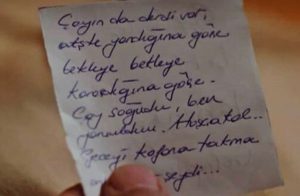 Çayın da derdi var,
ateşte yandığına göre
bekleye bekleye
karardığına göre.
Çay soğudu, ben
yoruldum. Hoşcakal...
Geceyi kafana takma